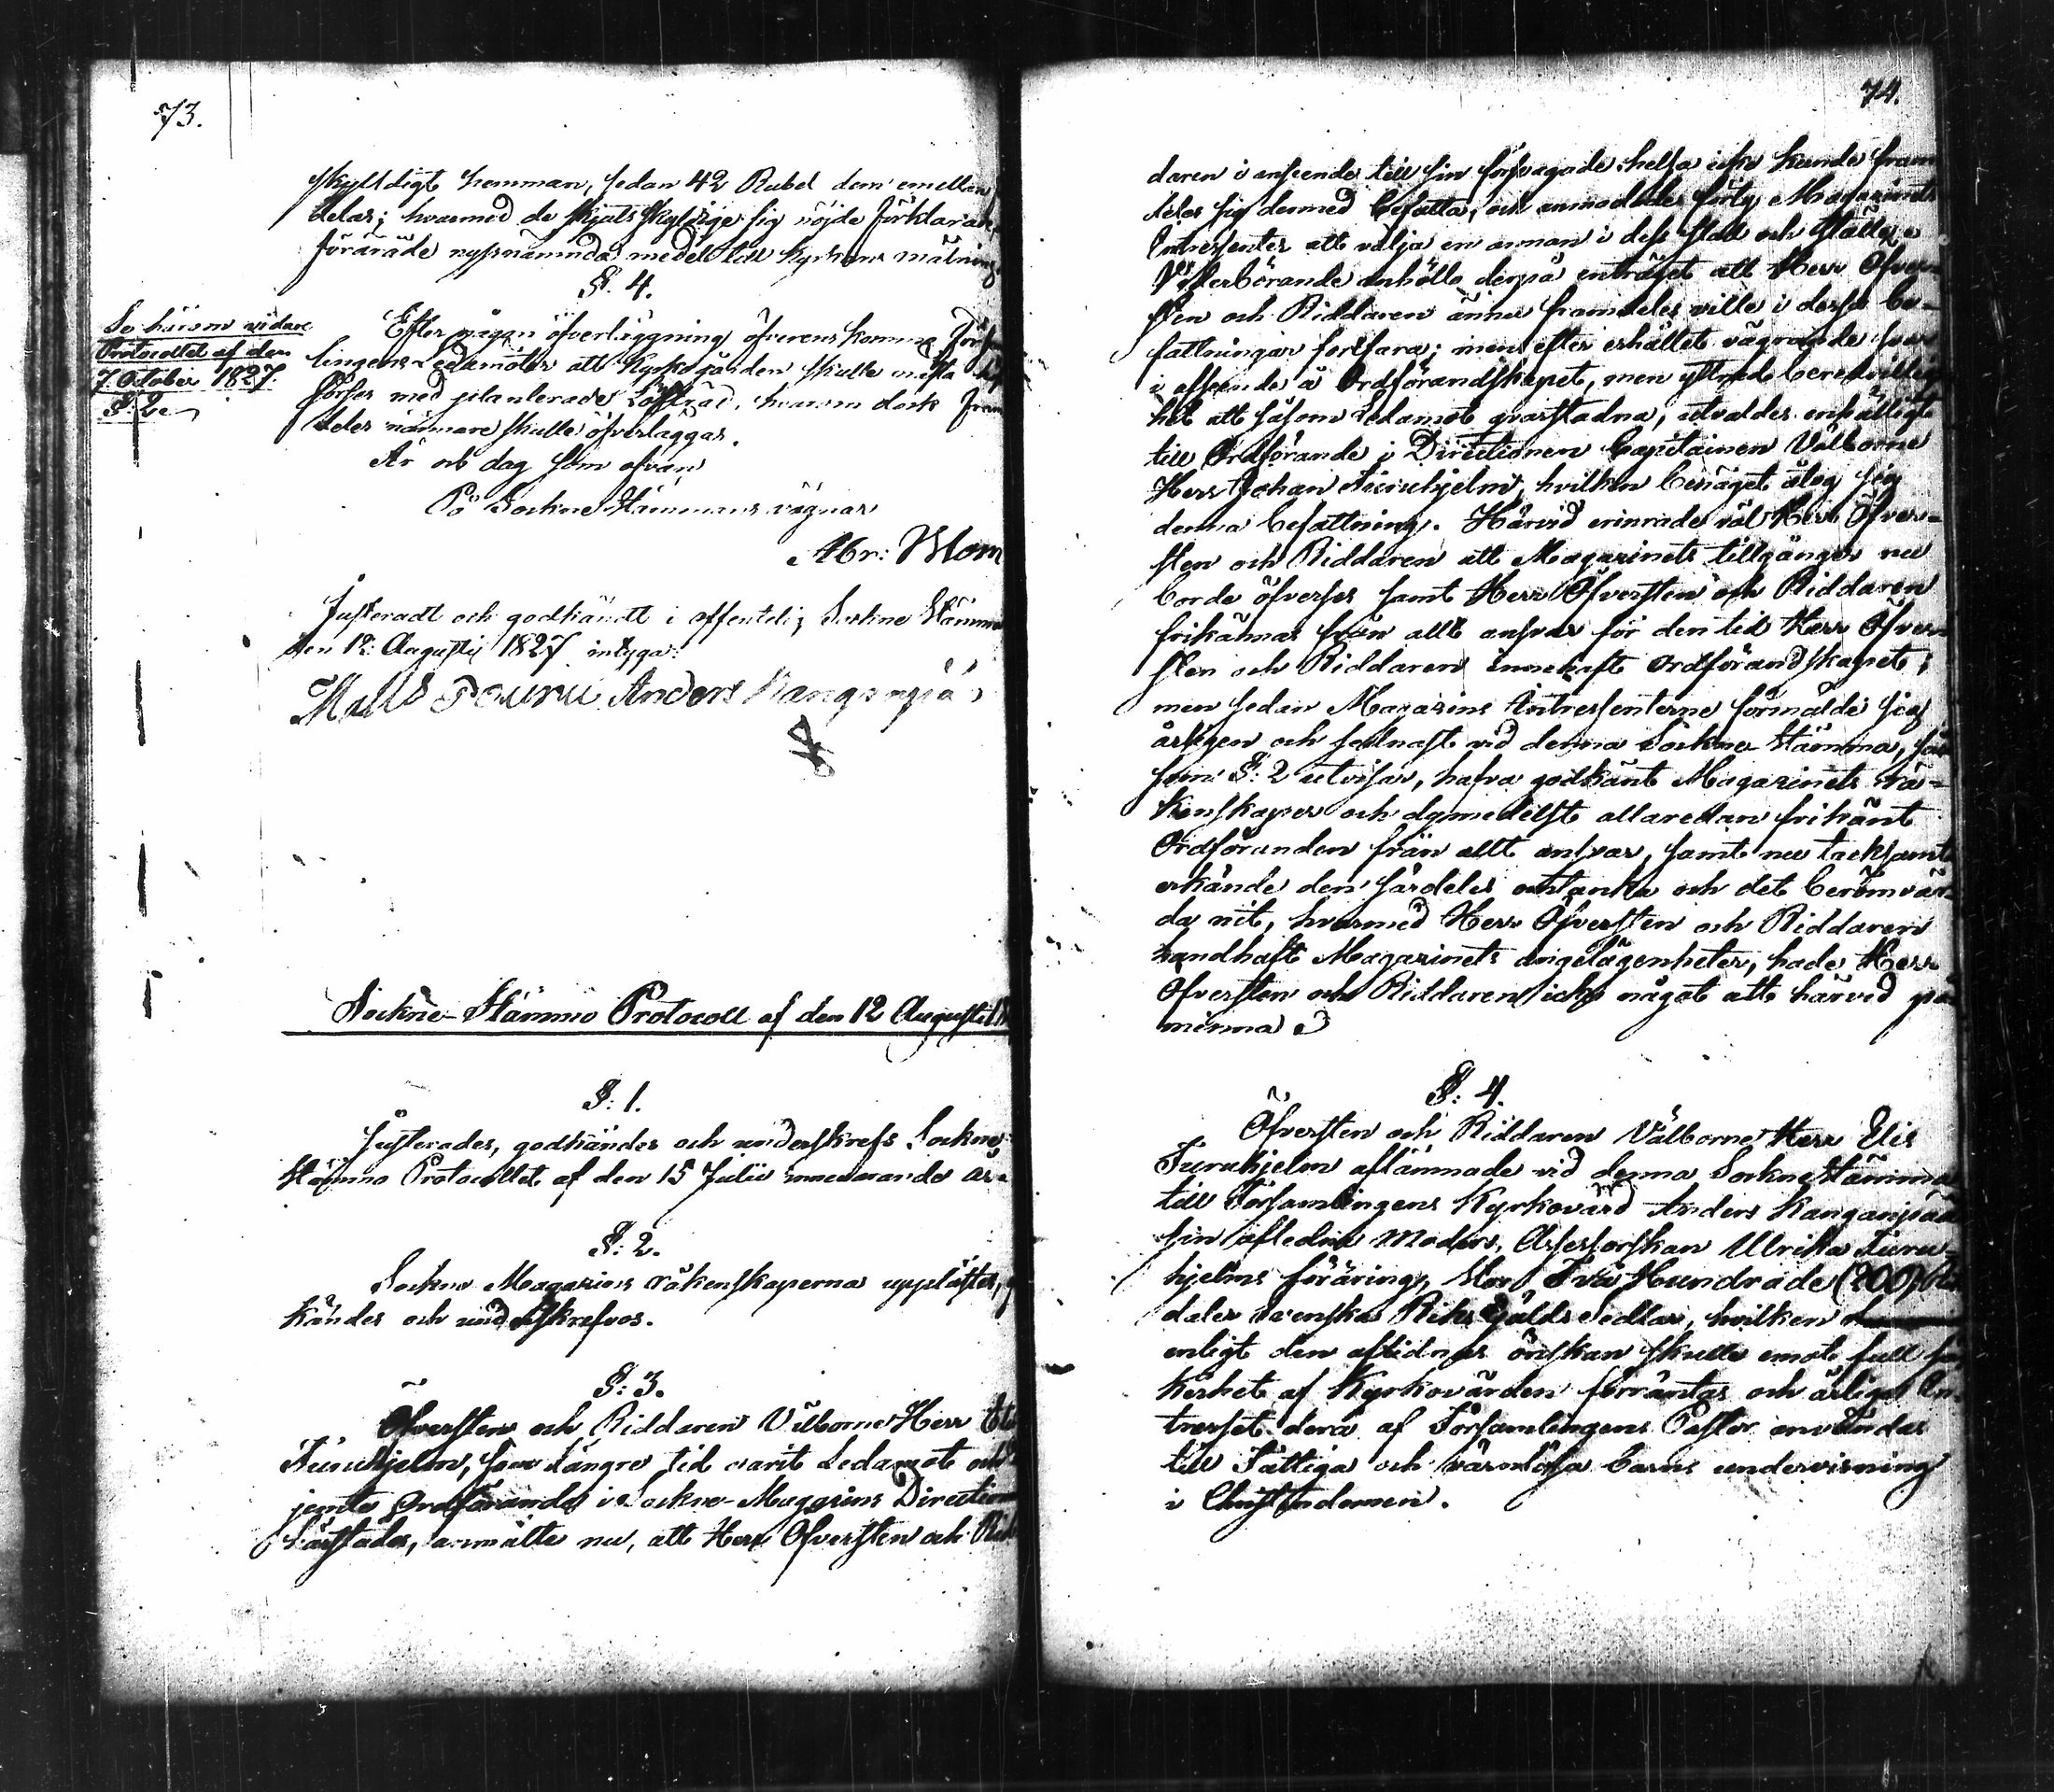 73.
skylldigt hemman, sedan 42 Rubel dem emellan
delas; hvarmed de skjuts skyldige sig nöjde förklarade,
förärade nyssnämnda medel till kyrkans målning.
§. 4.
Se härom vidare
Protocollet af den
7 October 1827.
§. 2.
Efter någon öfverläggning öfverens kommo Församm
lingens Ledamöter att Kyrkogården skulle nästa
förses med planterade Löfträd, hvarom dock fram
deles närmare skulle öfverläggas.
År och dag som ofvan
På Sockne Stämmans vägnar
Abr: Blom
Justeradt och godkändt i offentelig Sockne Stämma
den 12 Augusti 1827 intyga:
Matts Pouru Anders Kanganpää
Sockne-Stämmo Protocoll af den 12 Augusti
§: 1.
Justerades, godkändes och underskrefs Sockne
Stämmo Protocollet af den 15 Julii innevarande år.
§: 2.
Sockne Magazins räkenskaperna upplästes, g
kändes och underskrefvos.
§: 3.
Öfversten och Riddaren Välborne Herr Elis
Furuhjelm, som längre tid varit Ledamot och
jemte Ordförande i Sockne-Magazins Direction
härstädes, anmälte nu, att Herr Öfversten och Rid
74.
daren i anseende till sin försvagade helsa icke kunde fram
deles sig dermed befatta, och anmodades förty Magazinets
Intressenter att välja en annan i dess stad och ställe.
Vederbörande anhöllo derpå enträget att Herr Öfver-
sten och Riddaren ännu framdeles ville i dessa be-
fattningar fortfara; men efter erhållet vägrande svar
i afseende å Ordförandskapet, men yttrad beredvillig
het att såsom Ledamot qvarstadna, utvaldes enhälligt
till Ordförande i Directionen Capitainen Välborne
Herr Johan Furuhjelm, hvilken benäget åtog sig
denna befattning. Härvid erinrade väl Herr Öfver-
sten och Riddaren att Magazinets tillgångar nu
borde öfverses samt Herr Öfversten och Riddaren
frikännas från allt ansvar för den tid Herr Öfver-
sten och Riddaren innehaft Ordförandskapet;
men sedan Magazins Intressenterne förmälde sig
årligen och sednast vid denna Sockne Stämma, så
som §: 2 utvisar, hafva godkänt Magazinets Rä-
kenskaper och dymedelst allaredan frikänt
Ordföranden från allt ansvar, samt nu tacksamt
erkände den särdeles omtanka och det berömvär-
da nit, hvarmed Herr Öfversten och Riddaren
handhaft Magazinets angelägenheter, hade Herr
Öfversten och Riddaren icke något att härvid på
minna.
§: 4.
Öfversten och Riddaren Välborne Herr Elis
Furuhjelm aflämnade vid denna Sockne Stämma
till Församlingens Kyrkovärd Anders Kanganpää
sin afledna Moders, Assessorskan Ulrika Furu-
hjelms föräring, stor Två Hundrade (200) Rik
daler Svenska Riks Gälds Sedlar, hvilken
enligt den aflidnas önskan skulle emot full sä
kerhet af Kyrkovärden förräntas och årliga In-
tresset deraf af Församlingens Pastor användas
till Fattiga och värnlösa barns undervisning
i Christendomen.